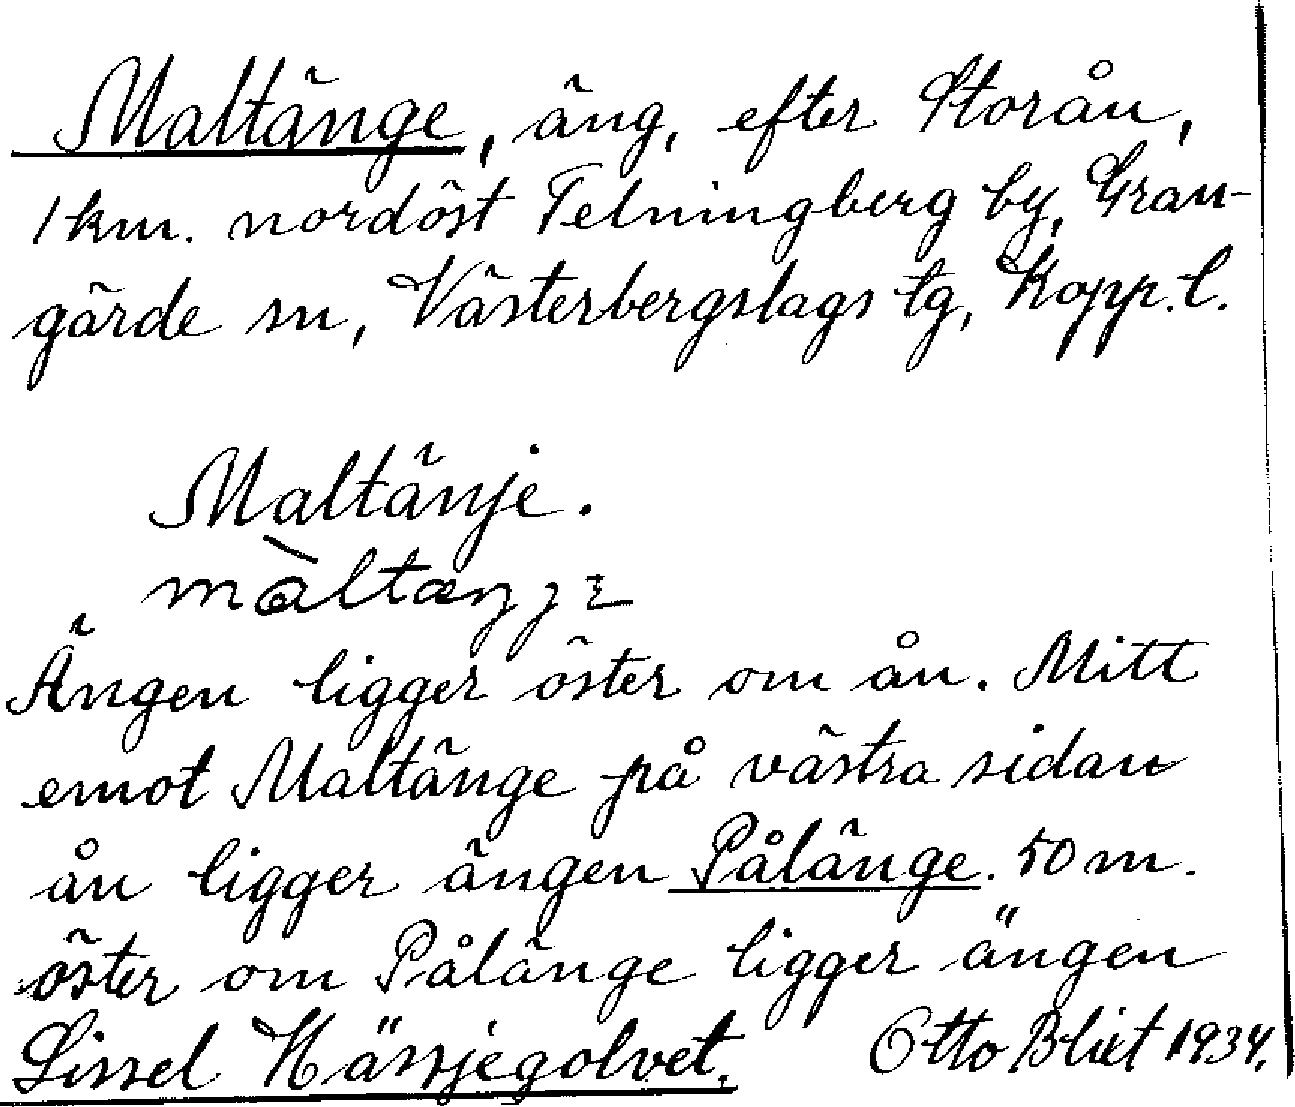 Maltänge, äng, efter Storån,
1 km. nordöst Telningberg by, Gran-
gärde sn, Västerbergslags tg, Kopp. l.
Maltänje.
màltæŋjɛ
Ängen ligger öster om ån. Mitt
emot Maltänge på västra sidan
ån ligger ängen Pålänge. 50 m.
öster om Pålänge ligger ängen
Lissel Hässjegolvet. Otto Blixt 1934.